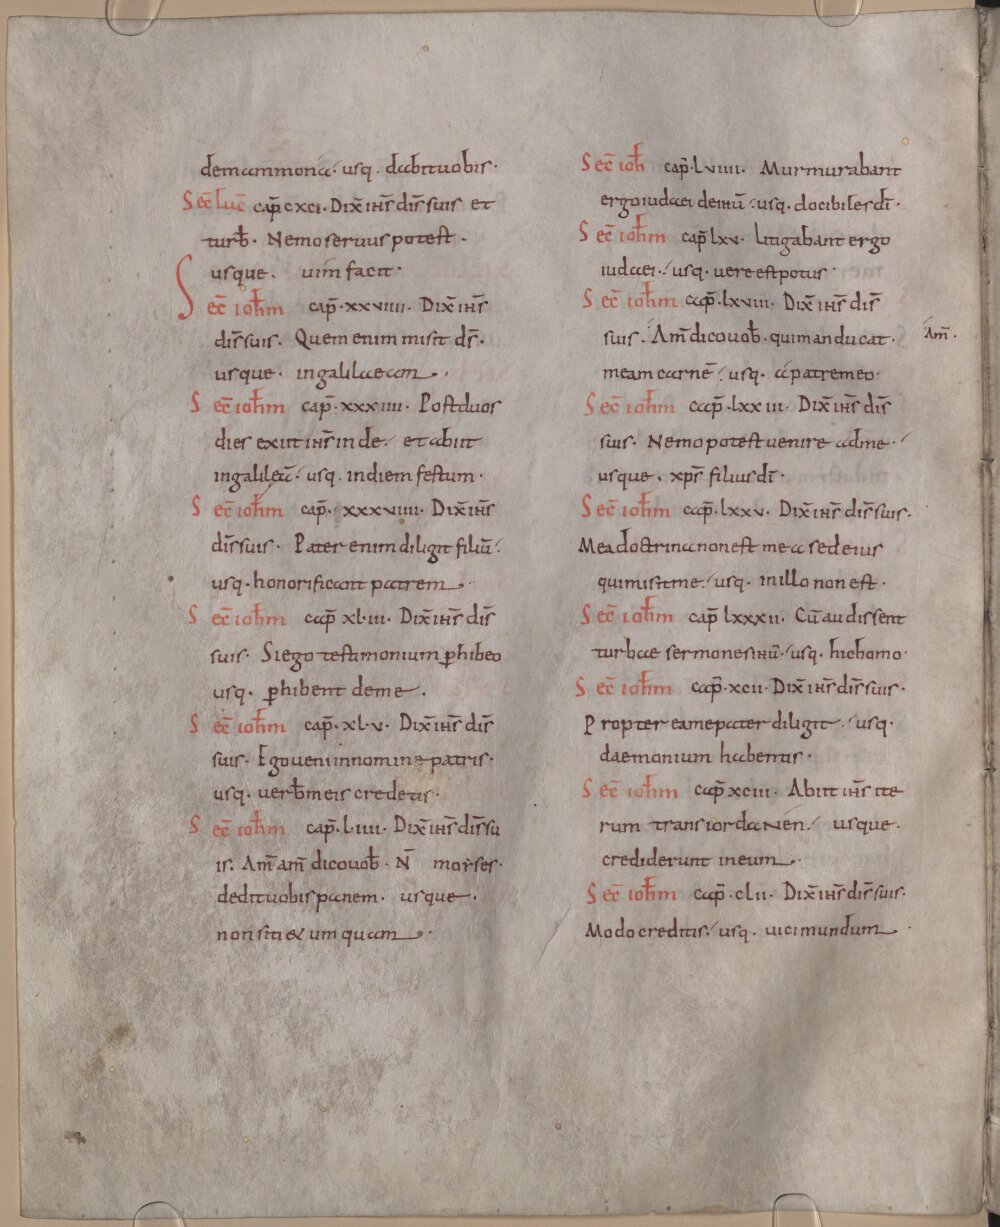 demammona: usq. dabituobis.
Sec̄ luc̄ cap̄ cxci. Dix̄ ih̄s dis̄ suis et
turb̄. Nemo seruus potest.
usque. uim facit.
Sec̄ ioh̄m cap̄. xxviiii. Dix̄ ih̄s
dis̄ suis. Quem enim misit ds̄.
usque. ingalilaeam.
Sec̄ ioh̄m cap̄. xxxiiii. Postduos
dies exiit ih̄s inde. et abiit
ingalileā: usq. indiem festum.
Sec̄ ioh̄m cap̄. xxxviiii. Dix̄ ih̄s
dis̄ suis. Pater enim diligit filiū.
usq. honorificant patrem.
Sec̄ ioh̄m cap̄ xl.iii. Dix̄ ih̄s dis̄
suis. Siego testimonium ꝑhibeo
usq. ꝑhibent deme.
Sec̄ ioh̄m cap̄. xl.v. Dix̄ ih̄s dis̄
suis. Ego ueni innomine patris.
usq. uerb̄ meis credetis.
Sec̄ ioh̄m cap̄. l.iiii. Dix̄ ih̄s dis̄ su
is. Am̄ am̄ dicouob̄. N̄ moyses.
dedituobis panem. usque.
non siti& umquam.
Sec̄ ioh̄ cap̄. lviiii. Murmurabant
ergo iudaei deihū. usq. docibiles dī.
Sec̄ ioh̄m cap̄ lxv. Litigabant ergo
iudaei. usq. uere est potus.
Sec̄ ioh̄m cap̄. lxviii. Dix̄ ih̄s dis̄
suis. Am̄ dicouob̄. qui manducat. Am̄.
meam carnē. usq. a patre meo.
Sec̄ ioh̄m cap̄. lxxiii. Dix̄ ih̄s dis̄
suis. Nemo potest uenire adme.
usque. xp̄s filius dī.
Sec̄ ioh̄m cap̄. lxxv. Dix̄ ih̄s dis̄ suis.
Mea doctrina non est mea sed eius
qui misit me. usq. inillo non est.
Sec̄ ioh̄m cap̄ lxxxii. Cū audissent
turbae sermones ihū. usq. hic homo.
Sec̄ ioh̄m cap̄. xcii. Dix̄ ih̄s dis̄ suis.
Propterea me pater diligit. usq.
daemonium habentis.
Sec̄ ioh̄m cap̄ xciii. Abiit ih̄s ite
rum trans iordanen. usque.
crediderunt ineum.
Sec̄ ioh̄m cap̄. clii. Dix̄ ih̄s dis̄ suis.
Modo creditis. usq. uici mundum.